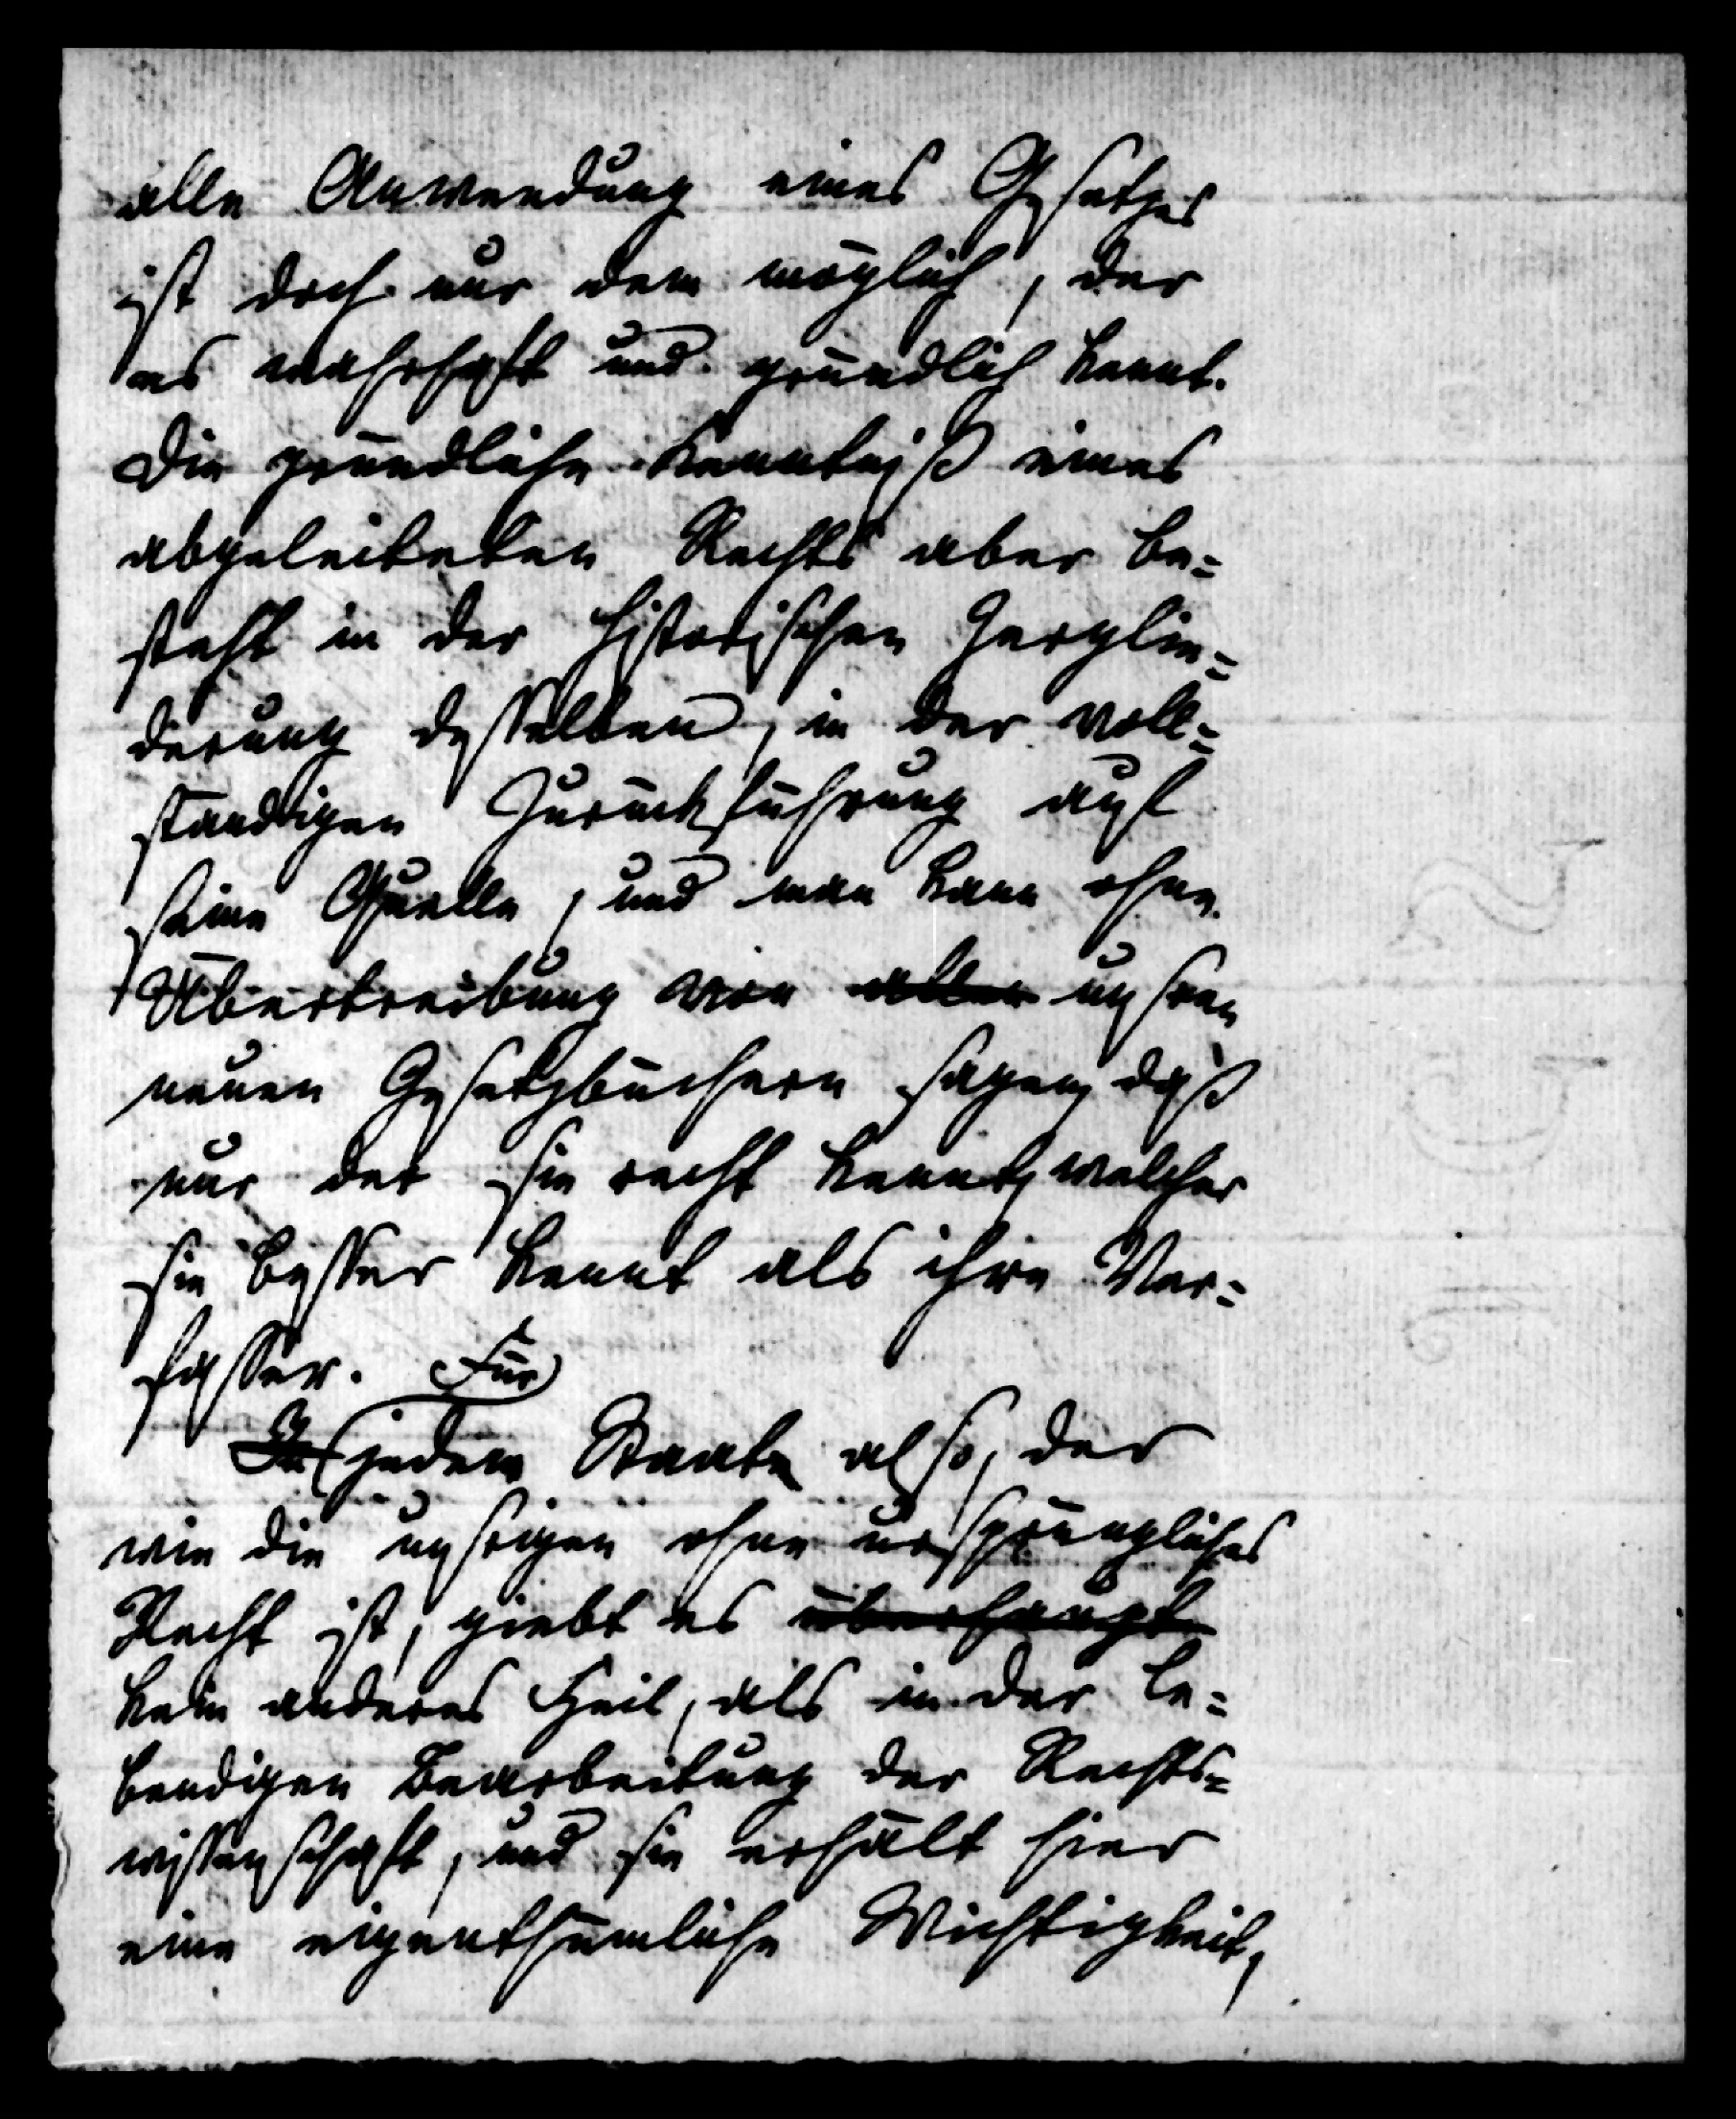 alle Anwendung eines Gesetzes
ist doch nur dem möglich, der
es wahrhaft und gründlich kennt.
Die gründliche Kenntniß eines
abgeleiteten Rechts aber be=
steht in der historischen Zerglie=
derung desselben, in der voll=
ständigen Zurückführung auf
seine Quelle, und man kann ohne
Übertreibung von allen unsren
neuen Gesetzbüchern sagen, daß
nur der sie recht kennt, welcher
sie besser kennt als ihre Ver=
fasser. Für
In jedem Staate also, der
wie die unsrigen ohne ursprüngliches
Recht ist, giebt es überhaupt
kein anderes Heil, als in der le=
bendigen Bearbeitung der Rechts=
wissenschaft, und sie erhält hier
eine eigenthümliche Wichtigkeit,